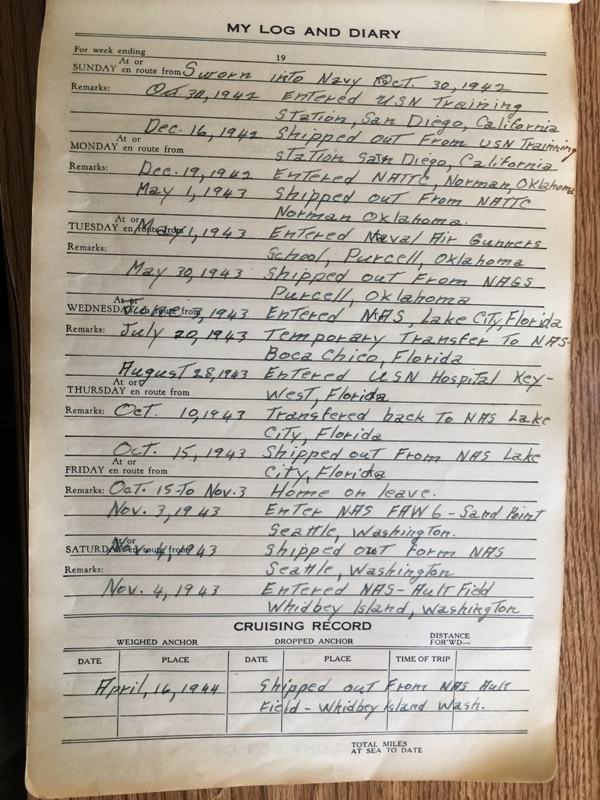 MY LOG AND DIARY
For week ending 19
SUNDAY At or en route from Sworn into Navy Oct. 30, 1942
Remarks: Oct 30, 1942 Entered USN Training
Station, San Diego, California
Dec. 16, 1942 Shipped out From USN Training
MONDAY At or en route from station San Diego, California
Remarks: Dec. 19, 1942 Entered NATTC, Norman, Oklahoma
May 1, 1943 Shipped out From NATTC
Norman Oklahoma.
TUESDAY At or en route from May 1, 1943 Entered Naval Air Gunners
Remarks: School, Purcell, Oklahoma
May 30, 1943 Shipped out From NAGS
Purcell, Oklahoma
WEDNESDAY At or en route from June 3, 1943 Entered NAS, Lake City, Florida
Remarks: July 20, 1943 Temporary Transfer To NAS-
Boca Chico, Florida
August 28, 1943 Entered USN Hospital Key-
THURSDAY At or en route from West, Florida
Remarks: Oct. 10, 1943 Transfered back To NAS Lake
City, Florida
Oct. 15, 1943 Shipped out From NAS Lake
FRIDAY At or en route from City, Florida
Remarks: Oct. 15-To Nov. 3 Home on leave.
Nov. 3, 1943 Enter NAS FAW 6 - Sand Point
Seattle, Washington.
SATURDAY At or en route from Nov. 4, 1943 Shipped out Form NAS
Remarks: Seattle, Washington
Nov. 4, 1943 Entered NAS - Ault Field
Whidbey Island, Washington
CRUISING RECORD
WEIGHED ANCHOR DROPPED ANCHOR DISTANCE FOR'WD—
DATE PLACE DATE PLACE TIME OF TRIP
April, 16, 1944 Shipped out From NAS Ault
Field - Whidbey Island Wash.
TOTAL MILES
AT SEA TO DATE